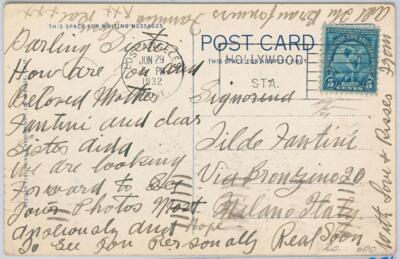 THIS SPACE FOR WRITING MESSAGES
Darling Sister
How are you and
Beloved Mother
Fantini and dear
Sister
We are looking
Forward to
Your Photos Most
and Hope
To See you Personally Real Soon
With Love & Kisses From
All
POST CARD
THIS SPACE FOR ADDRESS ONLY
LOS ANGELES
JUN 29
PM
1932
HOLLYWOOD
STA.
5 CENTS 5
Signorina
Tilde Fantini
Via Bronzino 20
Milano Italy